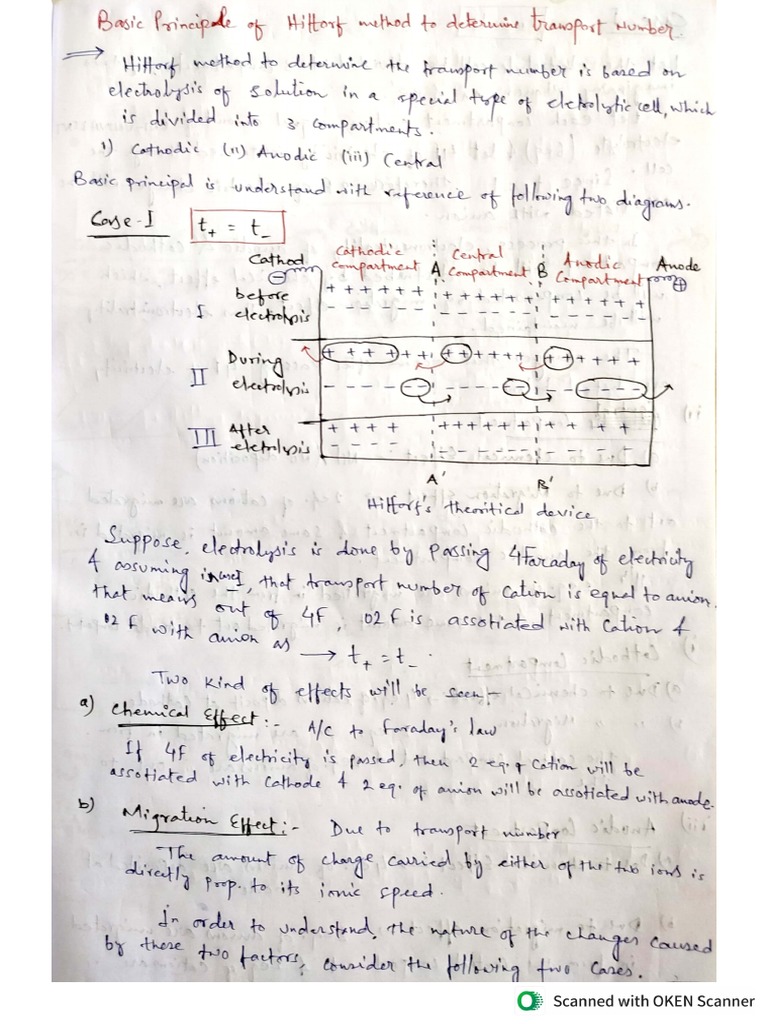 Basic Principale of Hittorf method to determine transport Number.
⇒ Hittorf method to determine the transport number is based on
electrolysis of solution in a special type of elctrolytic cell, which
is divided into 3 compartments.
1) Cathodic (11) Anodic (iii) Central
Basic principal is understand with reference of following two diagrams.
Case-I t₊ = t₋
Cathod Cathodic compartment A Central Compartment B Anodic Compartment Anode
⊖ ⊕
I before electrolysis
+ + + + + + + + + + + + + + + + + +
- - - - - - - - - - - - - - - - - -
II During electrolysis
+ + + + + + + + + + + + + + + + + +
- - - - - - - - - - - - - - - - - -
III After eletrolysis
+ + + + + + + + + + + + + +
- - - - - - - - - - - - - -
A' B'
Hittorf's theoritical device
Suppose, electrolysis is done by passing 4Faraday of electricity
& assuming in case I, that transport number of cation is equal to anion.
that means out of 4F, 02 F is assotiated with Cation &
02 F with anion as → t₊ = t₋.
Two kind of effects will be seen:-
a) Chemical Effect:- A/C to Faraday's law
If 4F of electricity is passed, then 2 eq. of Cation will be
assotiated with Cathode & 2 eq. of anion will be assotiated with anode.
b) Migration Effect:- Due to transport number
The amount of charge carried by either of the two ions is
directly prop. to its ionic speed.
In order to understand, the nature of the changes caused
by these two factors, consider the following two cases.
Scanned with OKEN Scanner